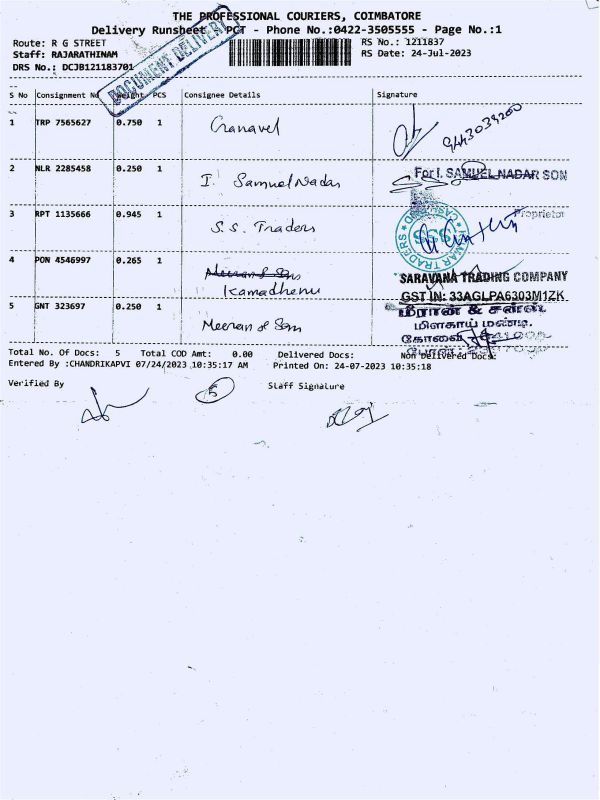 THE PROFESSIONAL COURIERS, COIMBATORE
Delivery Runsheet PCT - Phone No.:0422-3505555 - Page No.:1
Route: R G STREET
RS No.: 1211837
Staff: RAJARATHINAM
RS Date: 24-Jul-2023
DRS No.: DCJB121183701
DOCUMENT DELIVERY
S No Consignment No Weight PCS Consignee Details Signature
1 TRP 7565627 0.750 1 Ganavel
2 NLR 2285458 0.250 1 I. Samuel Nadar
For I. SAMUEL NADAR SON
Proprietor
3 RPT 1135666 0.945 1 S.S. Traders
4 PON 4546997 0.265 1 Meeran & Sons
Kamadhenu
SARAVANA TRADING COMPANY
GST IN: 33AGLPA6303M1ZK
5 GNT 323697 0.250 1 Meeran & Son
மீரான் & சன்ஸ்
மிளகாய் மண்டி.
Total No. Of Docs: 5 Total COD Amt: 0.00 Delivered Docs: Non Delivered Docs:
Entered By :CHANDRIKAPVI 07/24/2023 10:35:17 AM Printed On: 24-07-2023 10:35:18
Verified By 5 Staff Signature